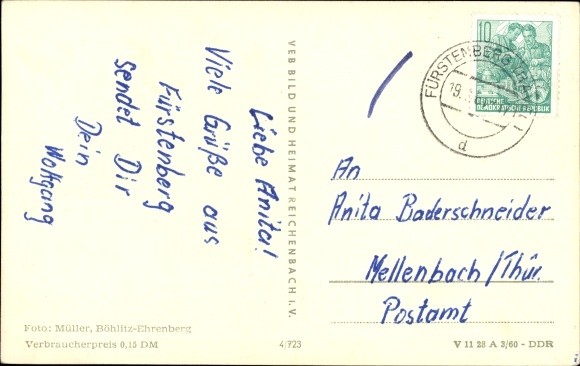 Liebe Anita!
Viele Grüße aus
Fürstenberg
sendet Dir
Dein
Wolfgang
VEB BILD UND HEIMAT REICHENBACH i. V.
10
DEUTSCHE
DEMOKRATISCHE REPUBLIK
FÜRSTENBERG
19.
d
An
Anita Baderschneider
Mellenbach/Thür.
Postamt
Foto: Müller, Böhlitz-Ehrenberg
Verbraucherpreis 0,15 DM
4/723
V 11 28 A 3/60 - DDR